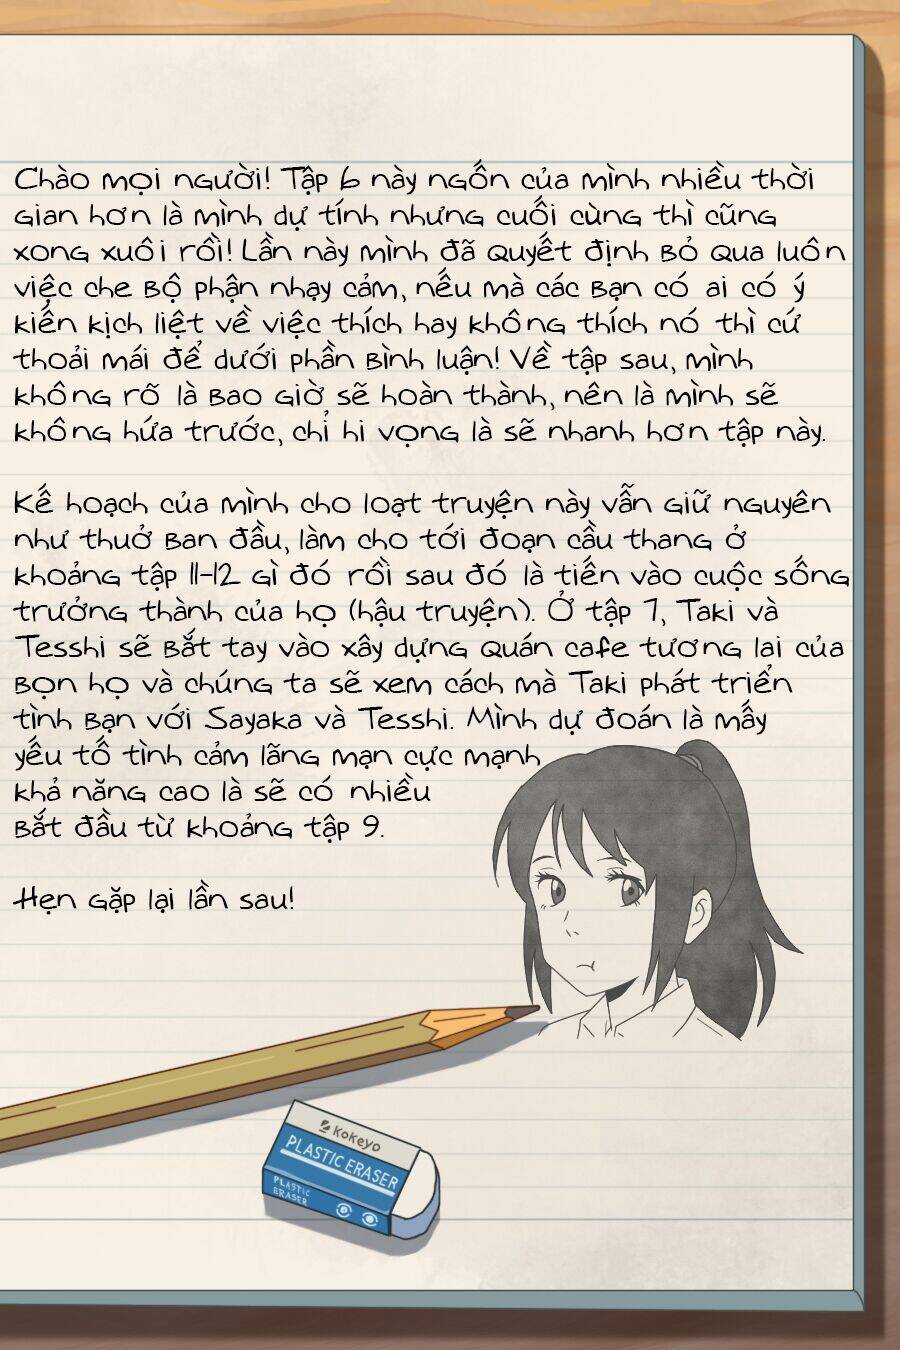 Chào mọi người! Tập 6 này ngốn của mình nhiều thời
gian hơn là mình dự tính nhưng cuối cùng thì cũng
xong xuôi rồi! Lần này mình đã quyết định bỏ qua luôn
việc che bộ phận nhạy cảm, nếu mà các bạn có ai có ý
kiến kịch liệt về việc thích hay không thích nó thì cứ
thoải mái để dưới phần bình luận! Về tập sau, mình
không rõ là bao giờ sẽ hoàn thành, nên là mình sẽ
không hứa trước, chỉ hi vọng là sẽ nhanh hơn tập này.
Kế hoạch của mình cho loạt truyện này vẫn giữ nguyên
như thuở ban đầu, làm cho tới đoạn cầu thang ở
khoảng tập 11-12 gì đó rồi sau đó là tiến vào cuộc sống
trưởng thành của họ (hậu truyện). Ở tập 7, Taki và
Tesshi sẽ bắt tay vào xây dựng quán cafe tương lai của
bọn họ và chúng ta sẽ xem cách mà Taki phát triển
tình bạn với Sayaka và Tesshi. Mình dự đoán là mấy
yếu tố tình cảm lãng mạn cực mạnh
khả năng cao là sẽ có nhiều
bắt đầu từ khoảng tập 9.
Hẹn gặp lại lần sau!
Kokeyo
PLASTIC ERASER
PLASTIC
ERASER